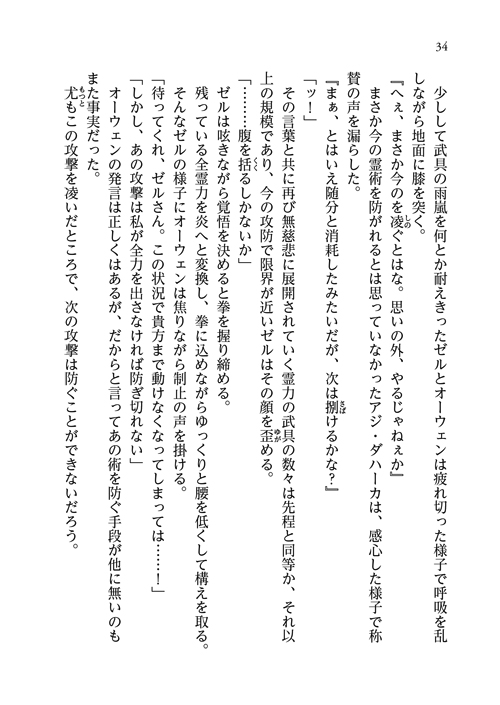 34
少しして武具の雨嵐を何とか耐えきったゼルとオーウェンは疲れ切った様子で呼吸を乱
しながら地面に膝を突く。
『へぇ、まさか今のを凌ぐとはな。思いの外、やるじゃねぇか』
まさか今の霊術を防がれるとは思っていなかったアジ・ダハーカは、感心した様子で称
賛の声を漏らした。
『まぁ、とはいえ随分と消耗したみたいだが、次は捌けるかな？』
「ッ！」
その言葉と共に再び無慈悲に展開されていく霊力の武具の数々は先程と同等か、それ以
上の規模であり、今の攻防で限界が近いゼルはその顔を歪める。
「………腹を括るしかないか」
ゼルは呟きながら覚悟を決めると拳を握り締める。
残っている全霊力を炎へと変換し、拳に込めながらゆっくりと腰を低くして構えを取る。
そんなゼルの様子にオーウェンは焦りながら制止の声を掛ける。
「待ってくれ、ゼルさん。この状況で貴方まで動けなくなってしまっては……！」
「しかし、あの攻撃は私が全力を出さなければ防ぎ切れない」
オーウェンの発言は正しくはあるが、だからと言ってあの術を防ぐ手段が他に無いのも
また事実だった。
尤もこの攻撃を凌いだところで、次の攻撃は防ぐことができないだろう。